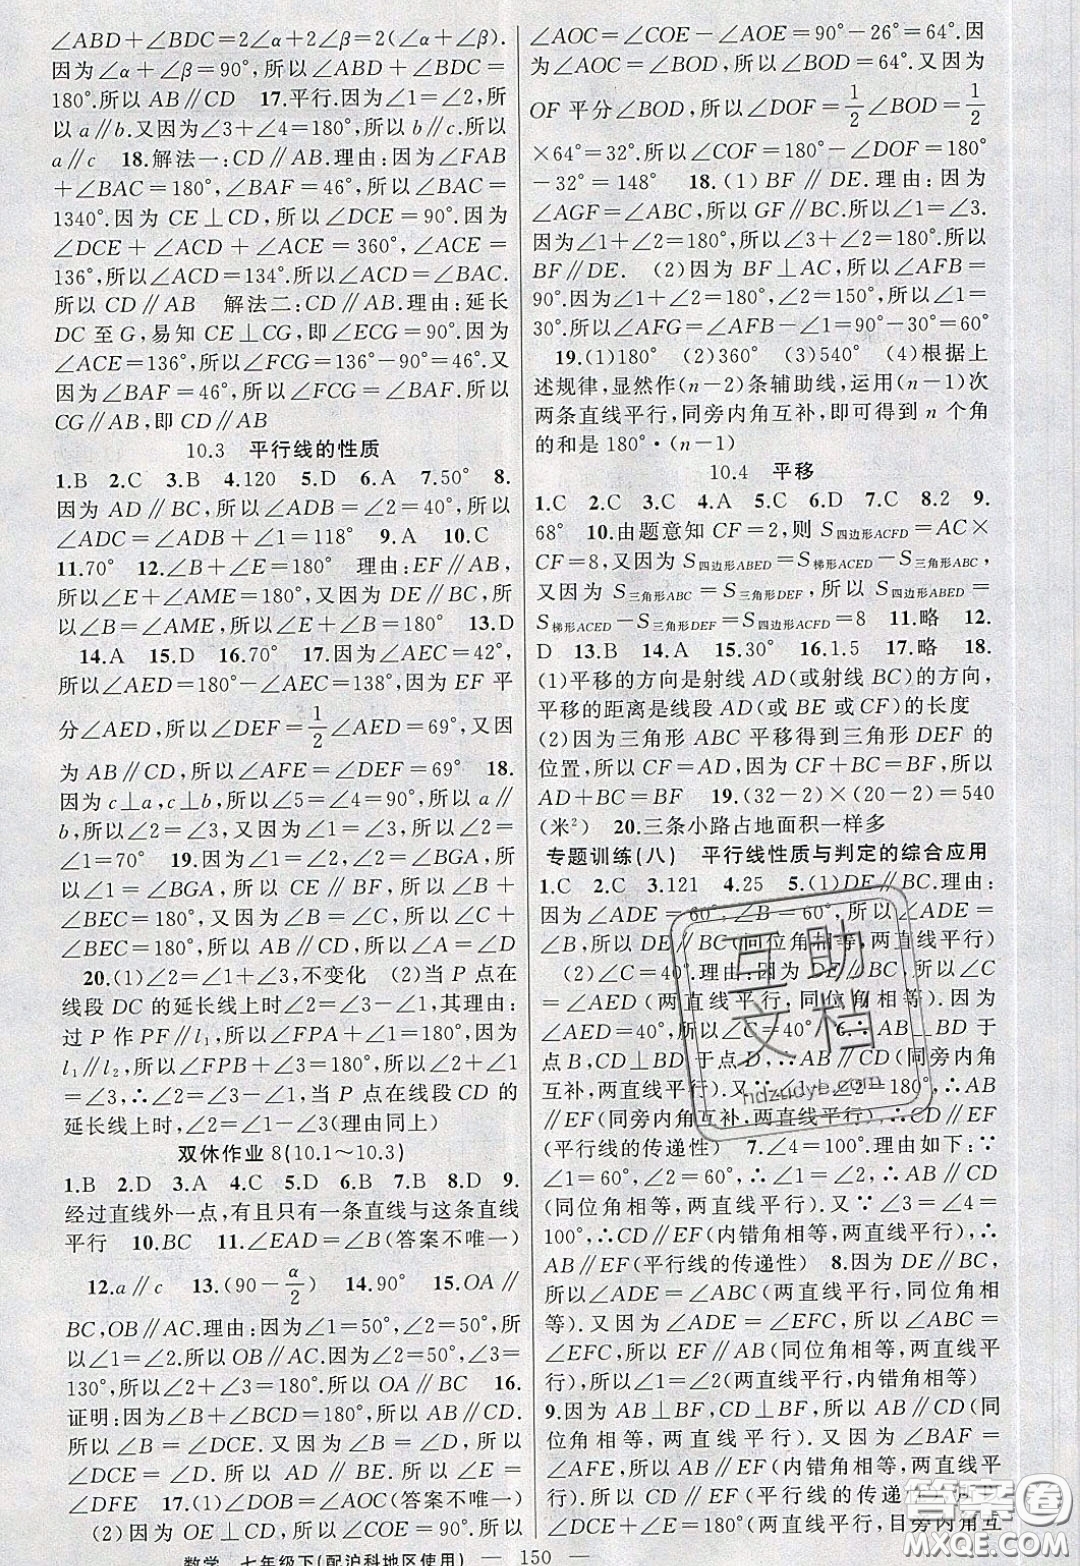 ∠ABD+∠BDC=2∠α+2∠β=2(∠α+∠β).
因为∠α+∠β=90°,所以∠ABD+∠BDC=
180°.所以 AB∥CD 17.平行.因为∠1=∠2,所
以 a∥b.又因为∠3+∠4=180°,所以 b∥c.所以
a∥c 18.解法一:CD∥AB.理由:因为∠FAB
+∠BAC=180°,∠BAF=46°,所以∠BAC=
1340°.因为 CE⊥CD,所以∠DCE=90°.因为
∠DCE+∠ACD+∠ACE=360°,∠ACE=
136°,所以∠ACD=134°.所以∠ACD=∠BAC.
所以 CD∥AB 解法二:CD∥AB.理由:延长
DC 至 G,易知 CE⊥CG,即∠ECG=90°.因为
∠ACE=136°,所以∠FCG=136°-90°=46°.又
因为∠BAF=46°,所以∠FCG=∠BAF.所以
CG∥AB,即 CD∥AB
10.3 平行线的性质
1.B 2.C 3.B 4.120 5.D 6.A 7.50° 8.
因为 AD∥BC,所以∠ADB=∠2=40°,所以
∠ADC=∠ADB+∠1=118° 9.A 10.C
11.70° 12.∠B+∠E=180° 理由:EF∥AB,
所以∠E+∠AME=180°.因为 DE∥BC,所以
以∠B=∠AME,所以∠E+∠B=180° 13.D
14.A 15.D 16.70° 17.因为∠AEC=42°,
所以∠AED=180°-∠AEC=138°,因为 EF 平
分∠AED,所以∠DEF=1/2∠AED=69°,又因
为 AB∥CD,所以∠AFE=∠DEF=69° 18.
因为 c⊥a,c⊥b,所以∠5=∠4=90°.所以 a∥
b,所以∠2=∠3,又因为∠1=∠2,所以∠3=
∠1=70° 19.因为∠1=∠2,∠2=∠BGA,所
以∠1=∠BGA,所以 AE∥BF,所以∠B+
∠BEC=180°,又因为∠B=∠C,所以∠C+
∠BEC=180°,所以 AB∥CD,所以∠A=∠D
20.(1)∠2=∠1+∠3,不变化 (2)当 P 点在
线段 DC 的延长线上时∠2=∠3-∠1,其理由:
过 P 作 PF∥l₁,所以∠FPA+∠1=180°,因为
l₁∥l₂,所以∠FPB+∠3=180°,∴∠1+∠2=
∠3,∴∠2=∠3-∠1,当 P 点在线段 CD 的
延长线上时,∠2=∠1-∠3(理由同上)
双休作业 8(10.1~10.3)
1.B 2.D 3.A 4.C 5.C 6.B 7.B 8.D 9.
经过直线外一点,有且只有一条直线与这条直线
平行 10.BC 11.∠EAD=∠B(答案不唯一)
12.a∥c 13.(90-α/2) 14.90° 15.OA∥
BC,OB∥AC.理由:因为∠1=50°,∠2=50°,所
以∠1=∠2.所以 OB∥AC.因为∠2=50°,∠3=
130°,所以∠2+∠3=180°.所以 OA∥BC 16.
证明:因为∠B+∠BCD=180°,所以 AB∥CD,
所以∠B=∠DCE.又因为∠B=∠D,所以
∠DCE=∠D.所以 AD∥BE.所以∠E=
∠DFE 17.(1)∠DOB=∠AOC(答案不唯一)
(2)因为 OE⊥CD,所以∠COE=90°,所以
∠AOC=∠COE-∠AOE=90°-26°=64°.因
为∠AOC=∠BOD,所以∠BOD=64°.又因为
OF 平分∠BOD,所以∠DOF=1/2∠BOD=1/2
×64°=32°.所以∠COF=180°-∠DOF=180°
-32°=148° 18.(1)BF∥DE.理由:因为
∠AGF=∠ABC,所以 GF∥BC.所以∠1=∠3.
因为∠1+∠2=180°,所以∠3+∠2=180°,所以
BF∥DE. (2)因为 BF⊥AC,所以∠AFB=
90°.因为∠1+∠2=180°,∠2=150°,所以∠1=
30°.所以∠AFG=∠AFB-∠1=90°-30°=60°
19.(1)180° (2)360° (3)540° (4)根据上
述规律,显然作(n-2)条辅助线,运用(n-1)次
两条直线平行,同旁内角互补,即可得到 n 个角
的和是 180°·(n-1)
10.4 平移
1.C 2.C 3.C 4.A 5.C 6.D 7.C 8.2 9.
68° 10.由题意知 CF=2,则 S四边形ACFD=AC×
CF=8,又因为 S四边形ABED=S梯形ACED-S三角形ABC,
又因为 S三角形ABC=S三角形DEF,所以 S四边形ABED=
S梯形ACED-S三角形DEF=S四边形ACFD=8 11.略 12.
D 13.B 14.A 15.30° 16.1.5 17.略 18.
(1)平移的方向是射线 AD(或射线 BC)的方向,
平移的距离是线段 AD(或 BE 或CF)的长度
(2)因为三角形 ABC 平移得到三角形 DEF 的
位置,所以 CF=AD,因为 CF+BC=BF,所以
AD+BC=BF 19.(32-2)×(20-2)=540
(米²) 20.三条小路占地面积一样多
专题训练(八) 平行线性质与判定的综合应用
1.C 2.C 3.121 4.25 5.(1)DE∥BC.理由:
因为∠ADE=60°,∠B=60°,所以∠ADE=
∠B,所以 DE∥BC(同位角相等,两直线平行)
(2)∠C=40°.理由:因为 DE∥BC,所以∠C
=∠AED(两直线平行,同位角相等),又因为
∠AED=40°,所以∠C=40° 6.∴AB⊥BD 于
点 B,CD⊥BD 于点 D,∴AB∥CD(同旁内角
互补,两直线平行).又∵∠1+∠2=180°,∴AB
∥EF(同旁内角互补,两直线平行),∴CD∥EF
(平行线的传递性) 7.∠4=100°.理由如下:∵
∠1=60°,∠2=60°,∴∠1=∠2,∴AB∥CD
(同位角相等,两直线平行).又∵∠3=∠4=
100°,∴CD∥EF(内错角相等,两直线平行),∴
AB∥EF(平行线的传递性) 8.因为 DE∥BC,
所以∠ADE=∠ABC(两直线平行,同位角相
等).又因为∠ADE=∠EFC,所以∠ABC=
∠EFC,所以 EF∥AB(同位角相等,两直线平
行),所以∠1=∠2(两直线平行,内错角相等)
9.因为 AB⊥BF,CD⊥BF,所以 AB∥CD(同
位角相等,两直线平行).又因为∠BAF=
∠AFE,所以 AB∥EF(内错角相等,两直线平
行),所以 CD∥EF(平行线的传递性)
数学 七年级下(配沪科地区使用) — 150 —
互助文档
hdzuoye.com
答案圈
MXQE.COM